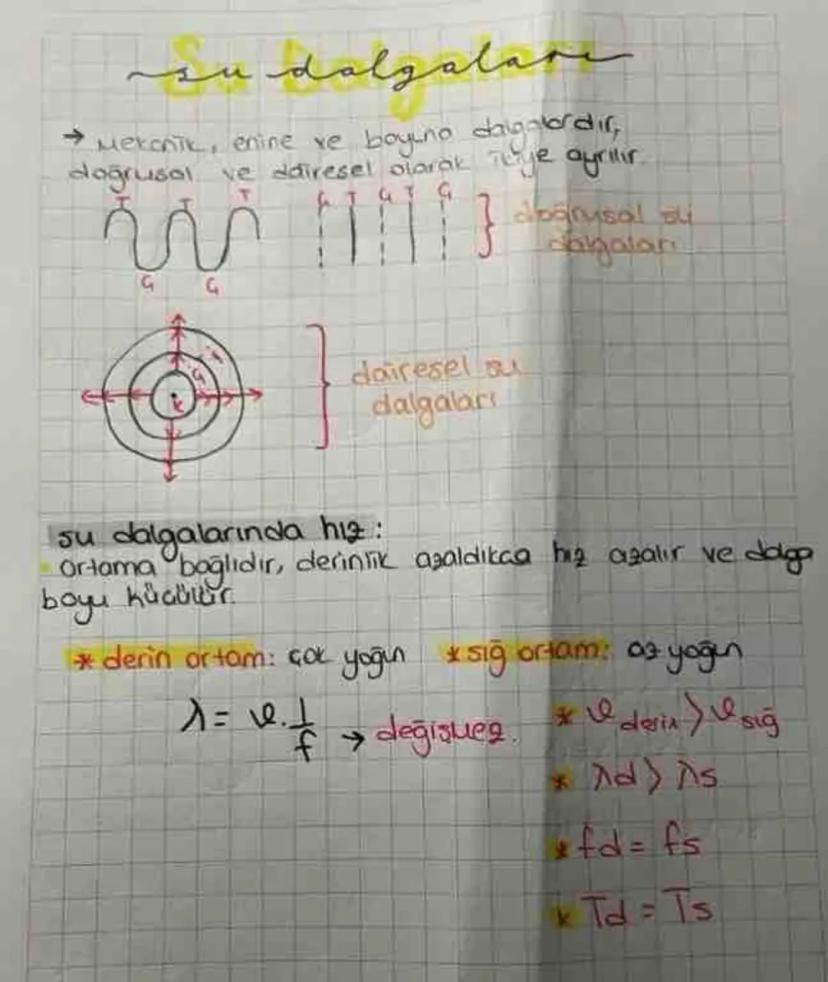 su dalgaları
→ Mekanik, enine ve boyuna dalgalardır,
doğrusal ve dairesel olarak ikiye ayrılır.
T T T Ç T Ç T Ç } doğrusal su
dalgaları
Ç Ç
T
Ç
K
} dairesel su
dalgaları
su dalgalarında hız:
Ortama bağlıdır, derinlik azaldıkca hız azalır ve dalga
boyu küçülür.
* derin ortam: çok yoğun * sığ ortam: az yoğun
λ = υ. 1/f → değişmez.
* υ derin > υ sığ
* λd > λs
* fd = fs
* Td = Ts